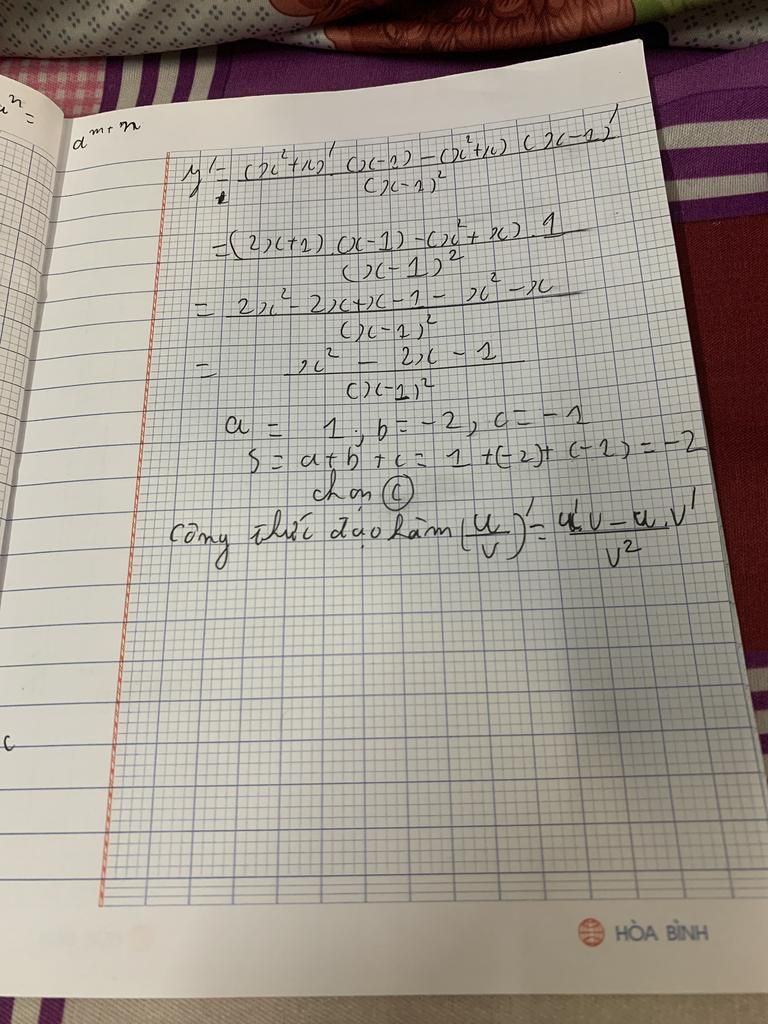 a^n =
a^{m+n}
y' = \frac{(x^2+x)'(x-1)-(x^2+x)(x-1)'}{(x-1)^2}
= \frac{(2x+1).(x-1)-(x^2+x).1}{(x-1)^2}
= \frac{2x^2-2x+x-1-x^2-x}{(x-1)^2}
= \frac{x^2-2x-1}{(x-1)^2}
a = 1; b = -2, c = -1
S = a+b+c = 1+(-2)+(-1) = -2
chọn C
Công thức đạo hàm (\frac{u}{v})' = \frac{u'v-u.v'}{v^2}
c
HÒA BÌNH